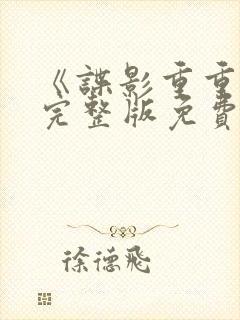 《諜影重重
完整版免費
徐德飛